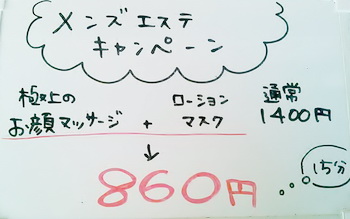 メンズエステ
キャンペーン
極上の
お顔マッサージ + ローション
マスク
通常
1400円
↓
860円
15分